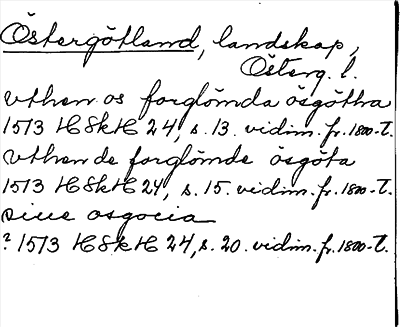 Östergötland, landskap,
Österg. l.
vthen os forglömda ösgöthra
1513 HSkH 24, s. 13. vidim. fr. 1800-t.
vthen de forglömde ösgöta
1513 HSkH 24, s. 15. vidim. fr. 1800-t.
siue osgocia
? 1513 HSkH 24, s. 20. vidim. fr. 1800-t.